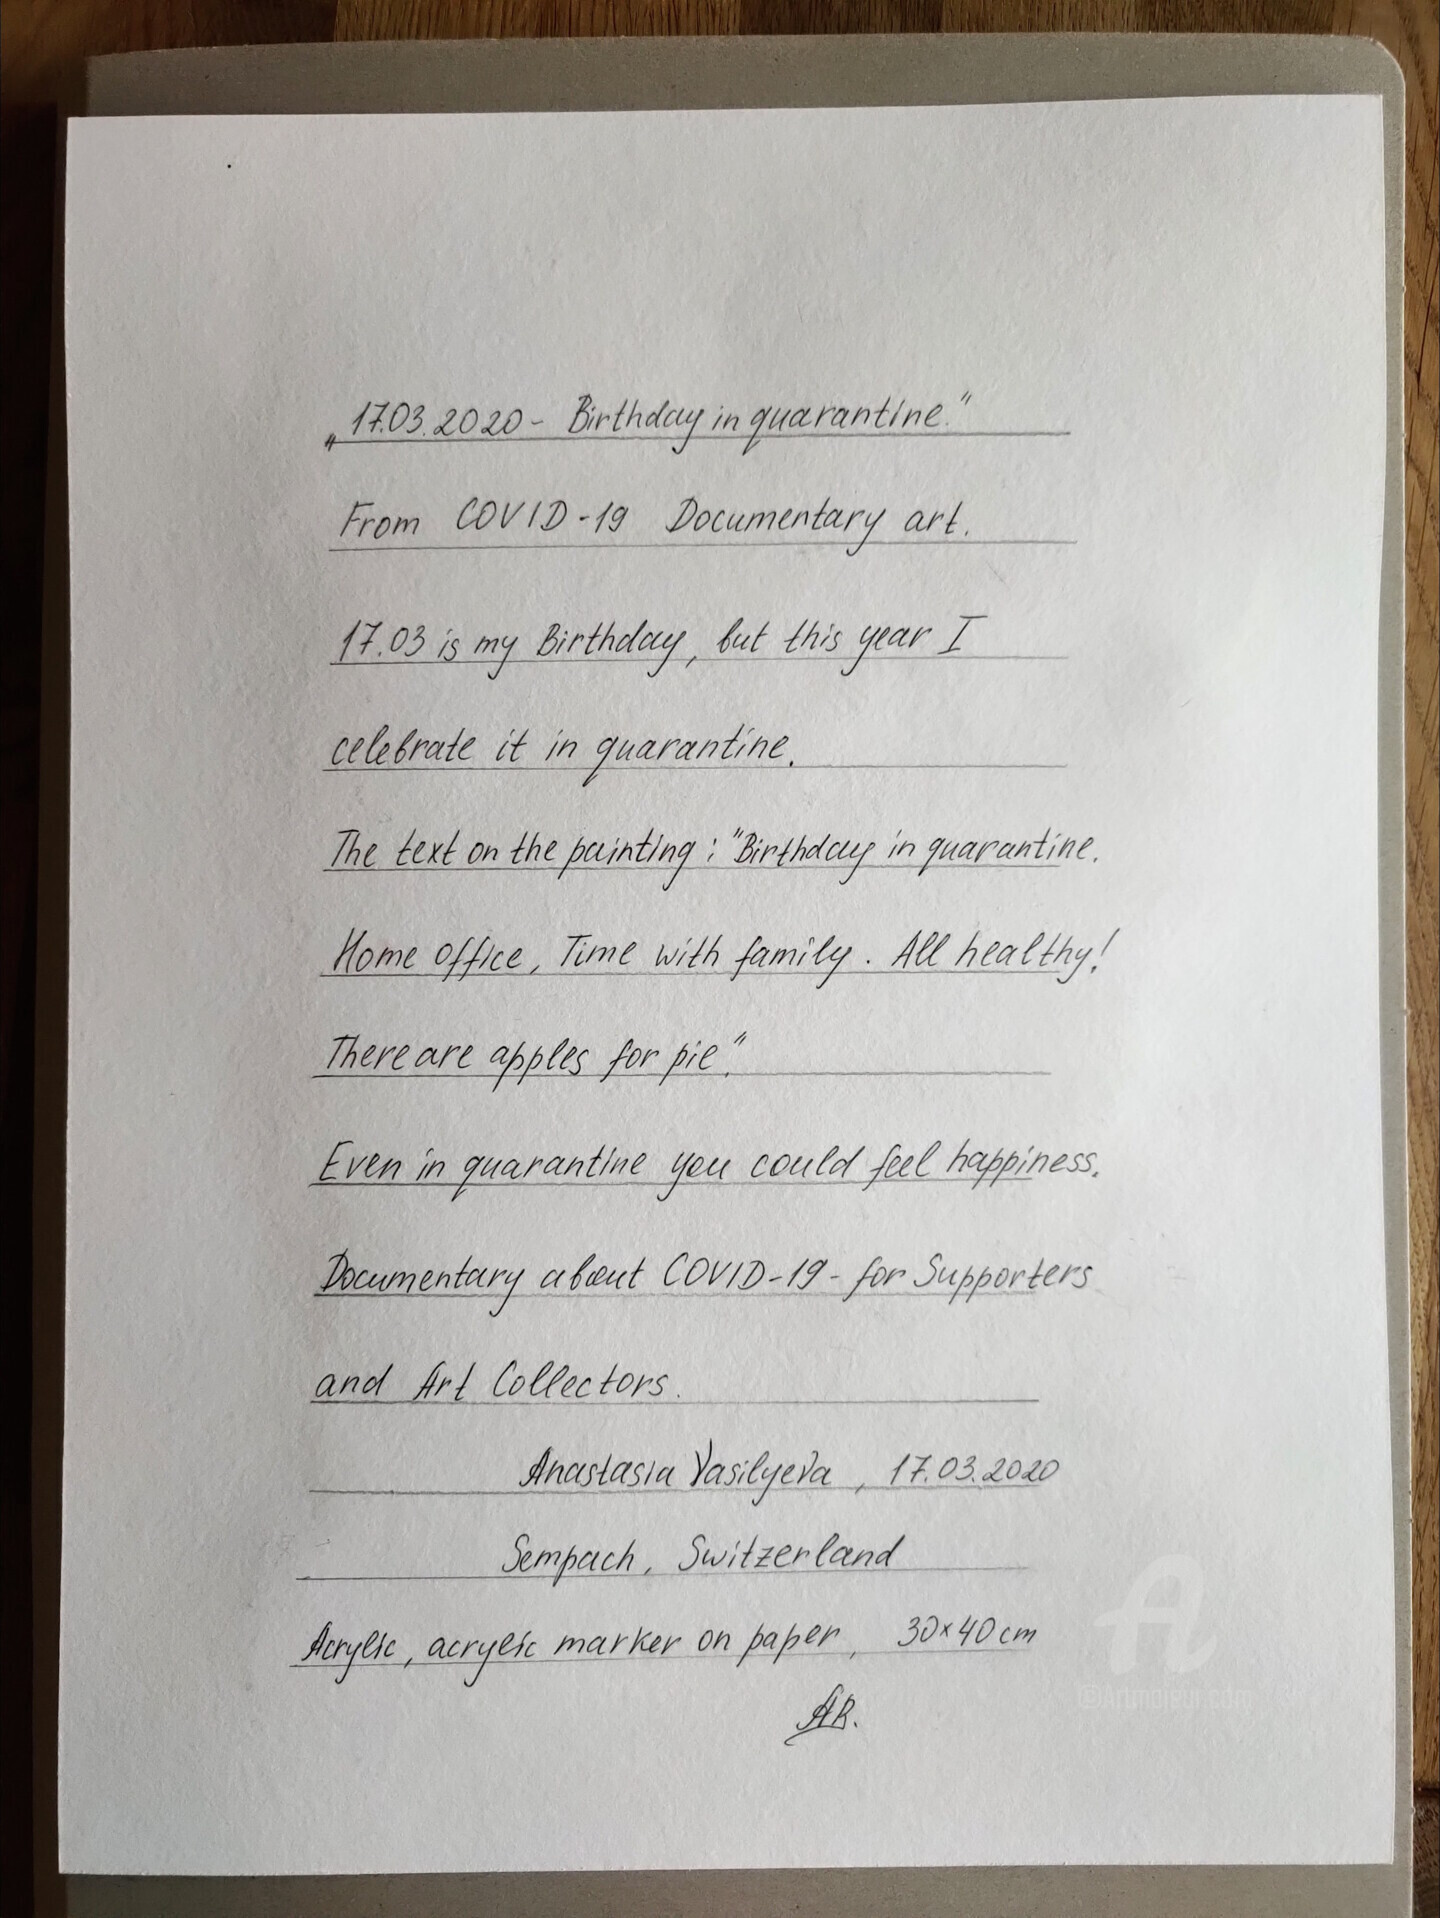 „17.03.2020 - Birthday in quarantine."
From COVID-19 Documentary art.
17.03 is my Birthday, but this year I
celebrate it in quarantine.
The text on the painting: "Birthday in quarantine.
Home office, Time with family. All healthy!
There are apples for pie".
Even in quarantine you could feel happiness.
Documentary about COVID-19 - for Supporters
and Art Collectors.
Anastasia Vasilyeva, 17.03.2020
Sempach, Switzerland
Acrylic, acrylic marker on paper, 30×40 cm